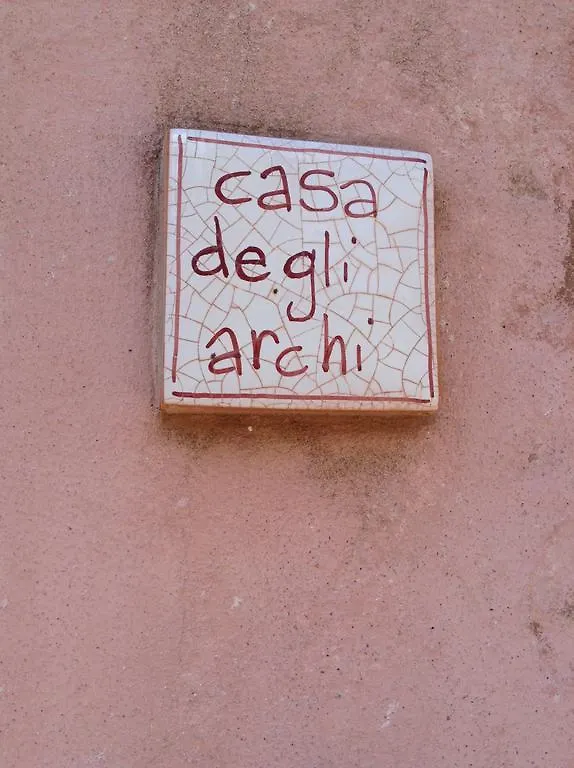 casa
degli
archi